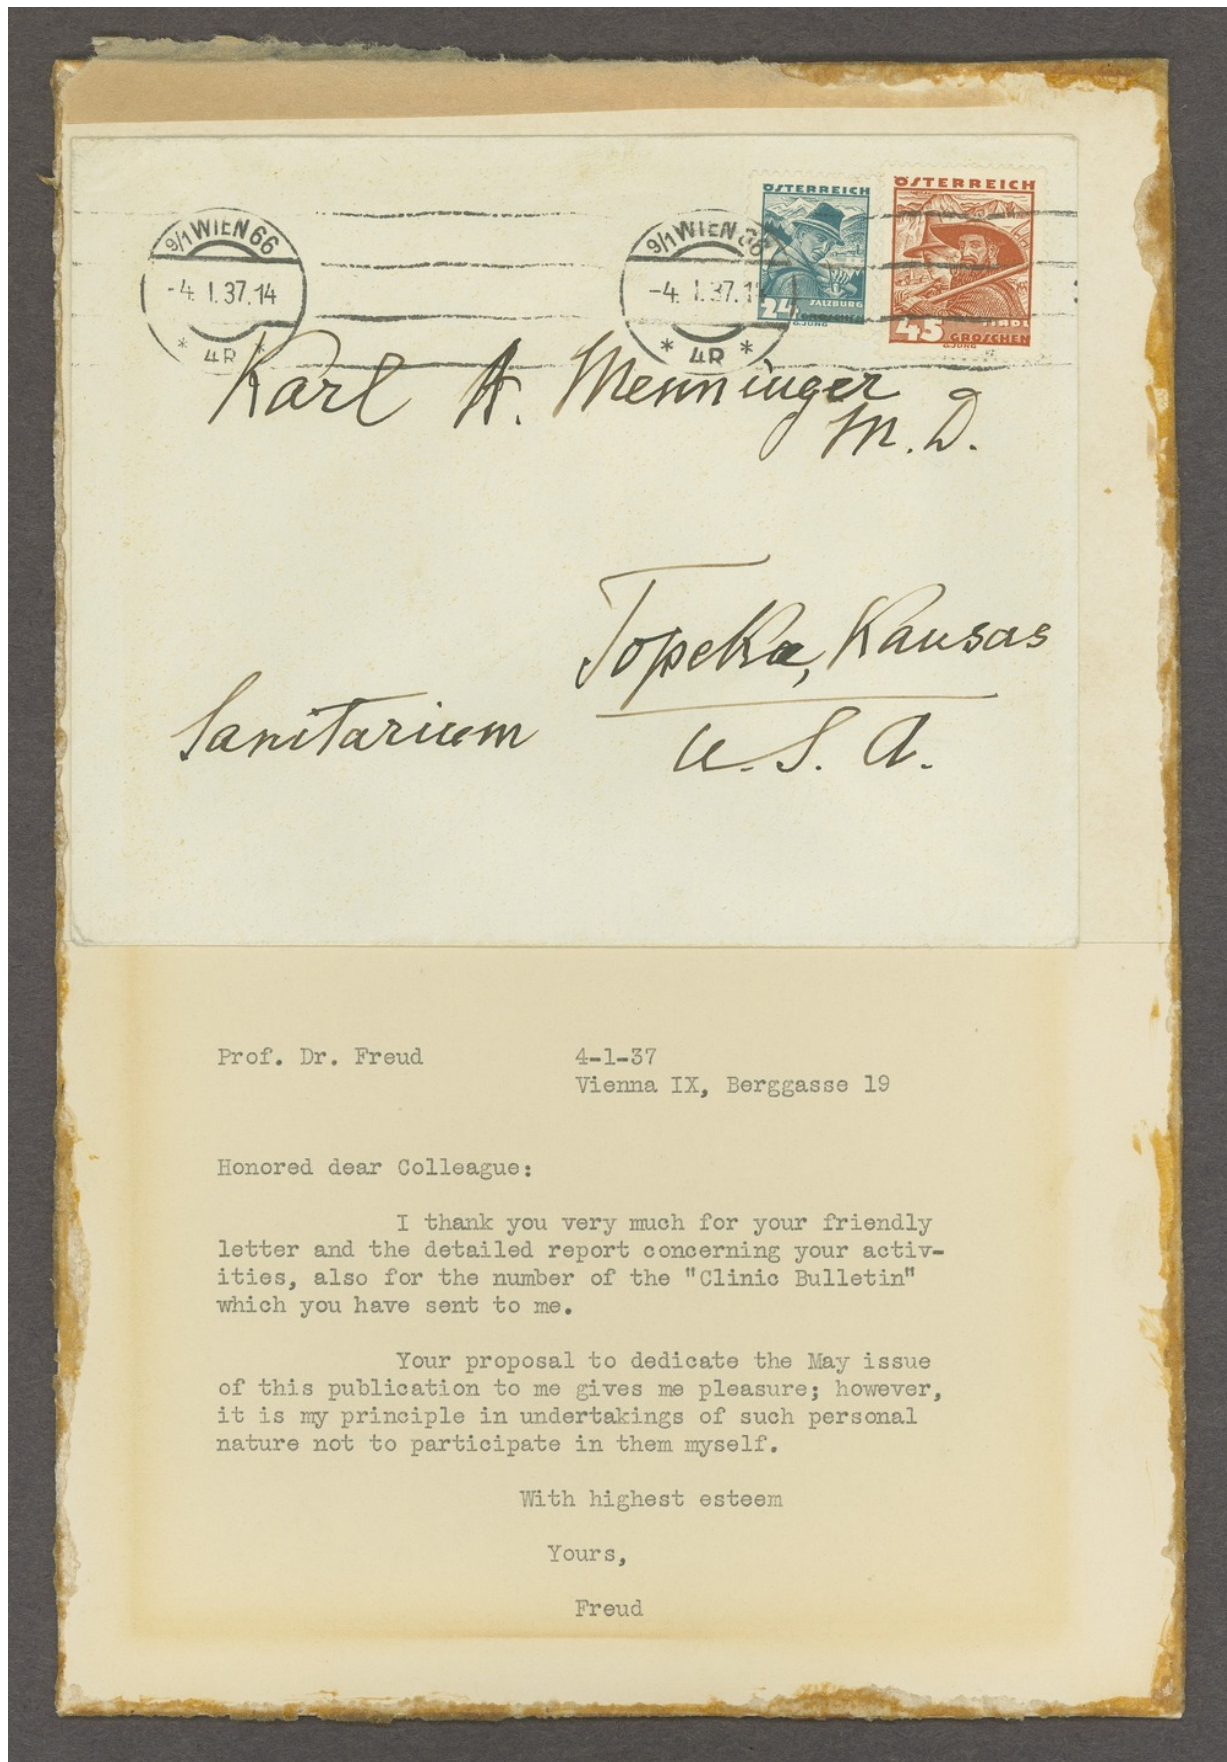 ÖSTERREICH
ÖSTERREICH
9/1 WIEN 66
9/1 WIEN 66
-4. I. 37. 14
-4. I. 37.
SALZBURG
24 GROSCHEN
G.JUNG
TIROL
45 GROSCHEN
G.JUNG
* 4R *
* 4R *
Karl A. Menninger
M. D.
Topeka, Kansas
Sanitarium
U. S. A.
Prof. Dr. Freud 4-1-37
Vienna IX, Berggasse 19
Honored dear Colleague:
I thank you very much for your friendly
letter and the detailed report concerning your activ-
ities, also for the number of the "Clinic Bulletin"
which you have sent to me.
Your proposal to dedicate the May issue
of this publication to me gives me pleasure; however,
it is my principle in undertakings of such personal
nature not to participate in them myself.
With highest esteem
Yours,
Freud